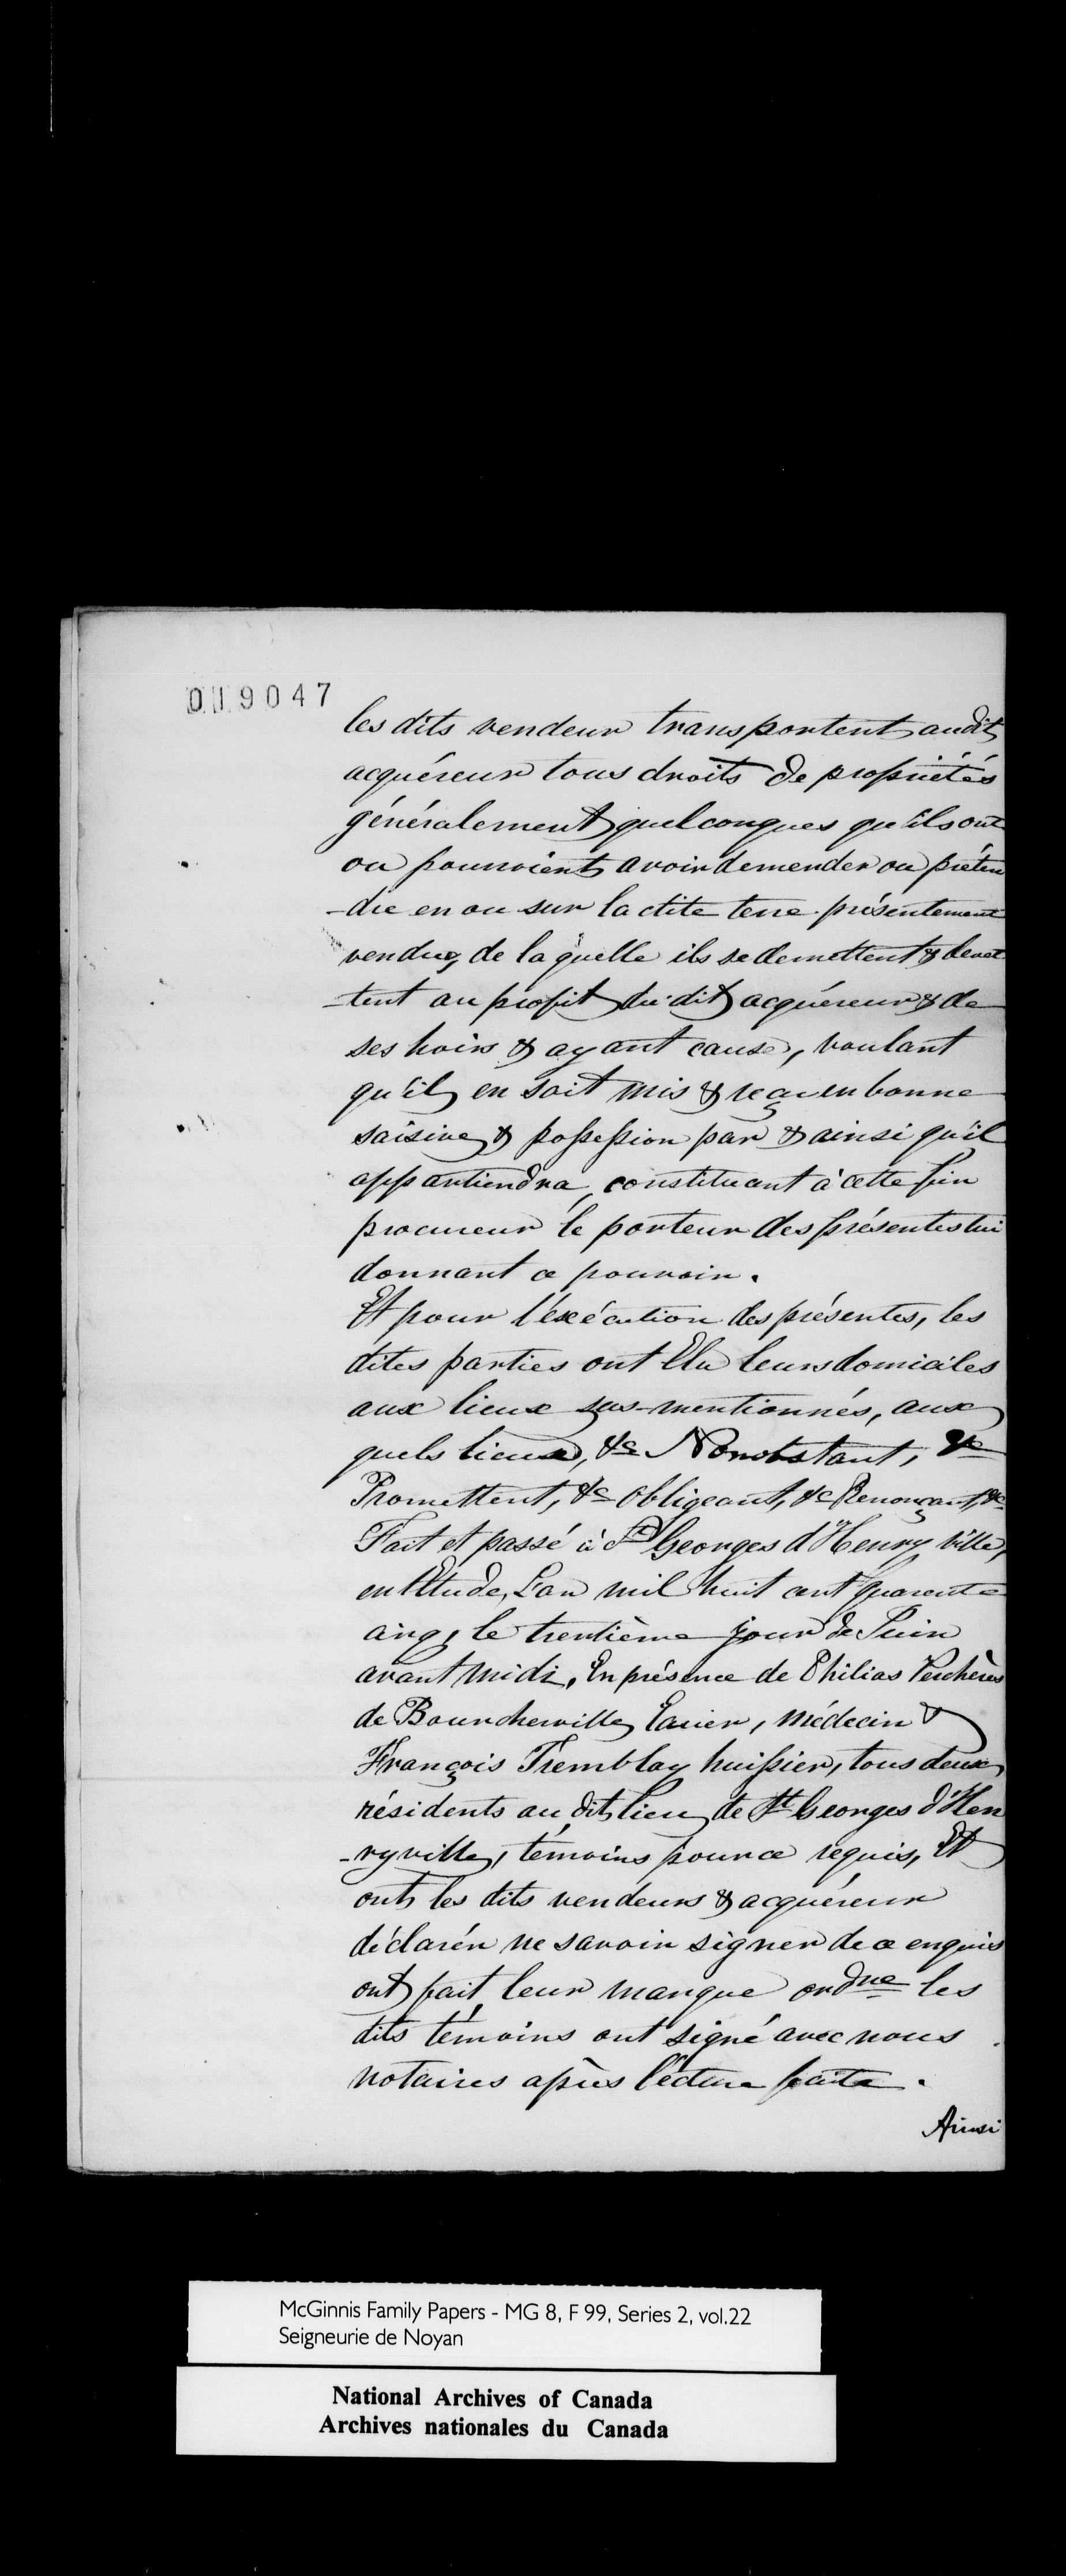 019047
les dits vendeur transportent audit
acquéreur tous droits de propriétés
généralement quelconques qu'ils ont
ou pourroient avoir demender ou préten
-dre en ou sur la dite terre présentement
vendue, de laquelle ils se demettent & devet
-tent au profit du dit acquéreur & de
ses hoirs & ayant cause, voulant
qu'il en soit mis & reçu en bonne
saisine & possession par & ainsi qu'il
appartiendra, constituant à cette fin
procureur le porteur des présentes lui
donnant ce pouvoir.
Et pour l'éxécution des présentes, les
dites parties ont Elu leurs domiciles
aux lieux sus-mentionnés, aux
quels lieux, &c Nonobstant, &c
Promettent, &c Obligeant, &c Renonçant, &c
Fait et passé à St Georges d'Henry ville,
en l'Etude, L'an mil huit cent quarente
cinq, le trentième jour de Juin
avant midi, En présence de Philias Verchères
de Boucherville Ecuier, médecin &
François Tremblay huissier, tous deux
résidents au dit lieu de St Georges d'Hen
-ryville, témoins pour ce requis, Et
ont les dits vendeurs & acquéreur
déclarén ne savoir signer de ce enquis
ont fait leur marque ordne les
dits témoins ont signé avec nous
notaires après lecture faite.
Ainsi
McGinnis Family Papers - MG 8, F 99, Series 2, vol.22
Seigneurie de Noyan
National Archives of Canada
Archives nationales du Canada